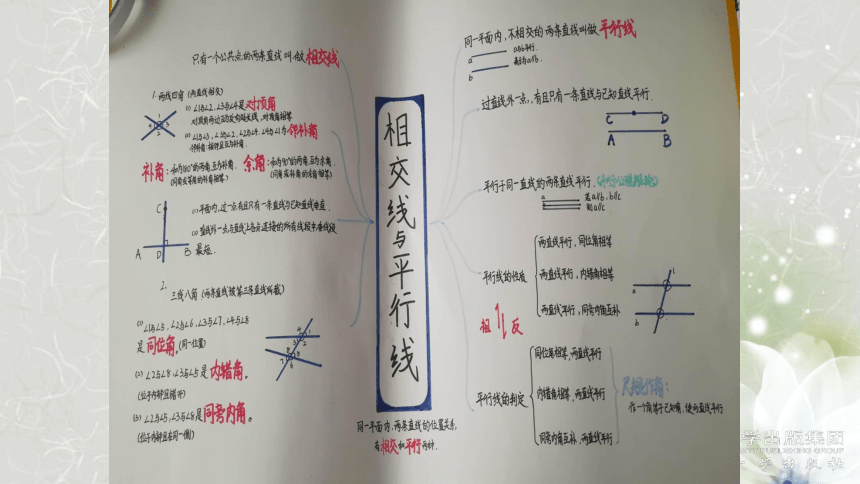 只有一个公共点的两条直线叫做相交线
1. 两线四角(两直线相交)
(1) ∠1与∠2,∠3与∠4是对顶角
对顶角两边互为反向延长线,对顶角相等
(2) ∠1与∠3,∠3与∠2,∠2与∠4,∠4与∠1为邻补角
邻补角:相邻且互为补角.
补角:和为180°的两角互为补角.
(同角或等角的补角相等)
余角:和为90°的两角互为余角.
(同角或补角的余角相等)
C
A D B
(1) 平面内,过一点有且只有一条直线与已知直线垂直.
(2) 直线外一点与直线上各点连接的所有线段中,垂线段
最短.
2.
三线八角(两条直线被第三条直线所截)
(1) ∠1与∠5,∠2与∠6,∠3与∠7,∠4与∠8
是同位角。(同一位置)
(2) ∠2与∠8,∠3与∠5是内错角。
(位于内部且错开)
(3) ∠2与∠5,∠3与∠8是同旁内角。
(位于内部且在同一侧)
相交线与平行线
同一平面内,两条直线的位置关系,
有相交和平行两种.
同一平面内,不相交的两条直线叫做平行线
a
b
a与b平行.
表示为a//b.
过直线外一点,有且只有一条直线与已知直线平行.
C D
A B
平行于同一直线的两条直线平行.(平行公理推论)
若a//b,b//c
则a//c
平行线的性质
两直线平行,同位角相等
两直线平行,内错角相等
两直线平行,同旁内角互补
相 反
a
b
l
平行线的判定
同位角相等,两直线平行
内错角相等,两直线平行
同旁内角互补,两直线平行
尺规作角:
作一个角等于已知角,使两直线平行
学出版集团